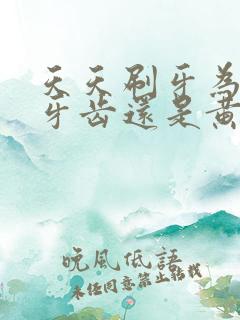 天天刷牙為
牙齒還是黃
晚風低語
未經同意禁止轉載